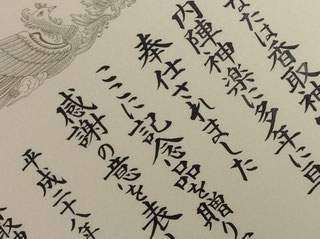 なたは香取神
内陣神楽に多年に亘
奉仕されました
ここに記念品を贈り
感謝の意を表
平成二十八年
取神